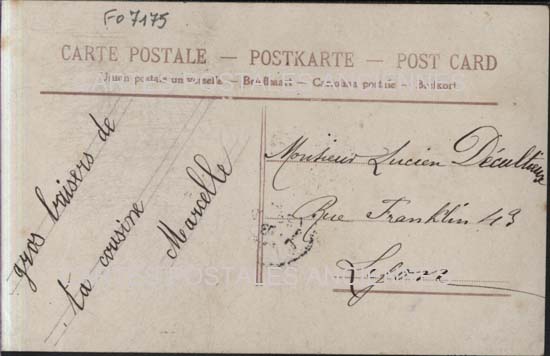 FO 7175
CARTE POSTALE — POSTKARTE — POST CARD
Union postale universelle — Briefkaart — Cartolina postale — Brefkort
gros baisers de
ta cousine
Marcelle
Monsieur Lucien Décultieux
Rue Franklin 43
Lyon
CARTES POSTALES ANCIENNES